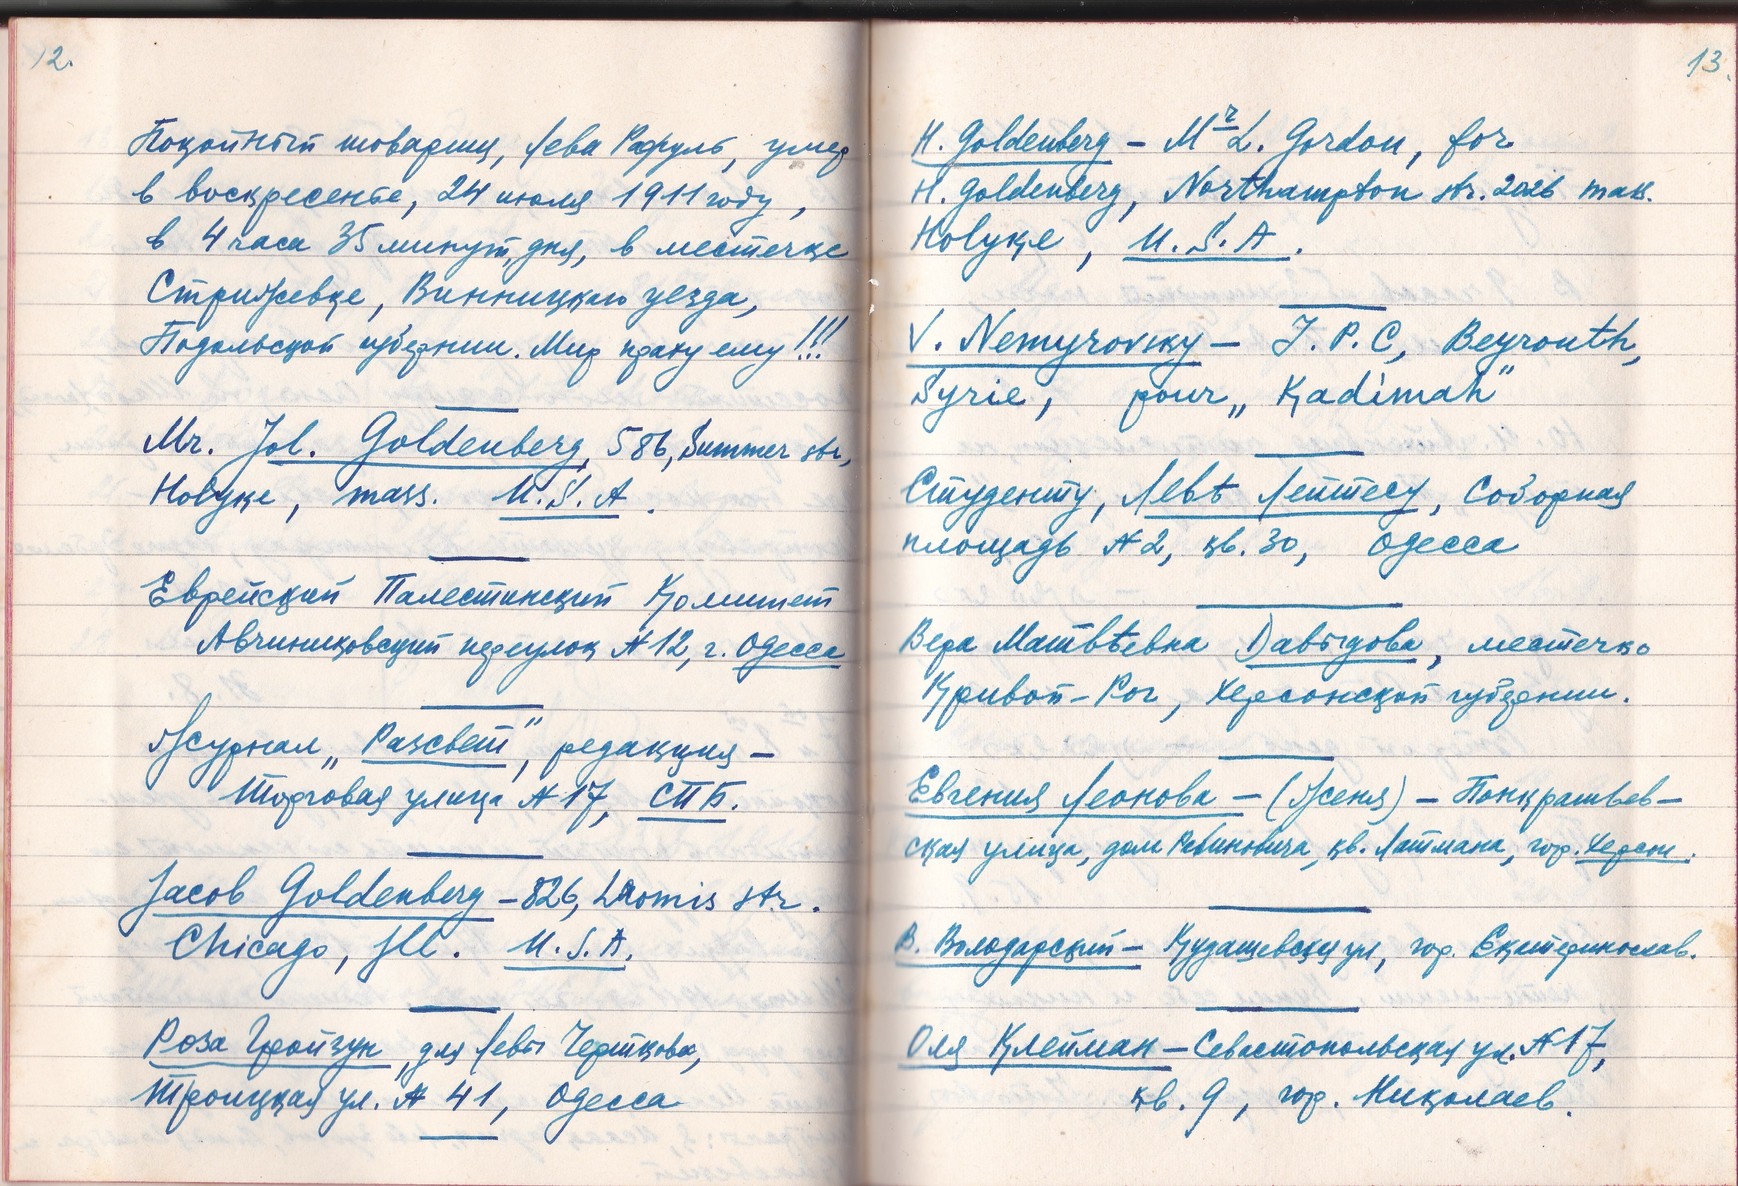 12.
Покойный товарищ, Лева Рафуль, умер
в воскресенье, 24 июля 1911 году,
в 4 часа 35 минут дня, в местечке
Стрижевке, Винницкаго уезда,
Подольской губернии. Мир праху ему!!!
Mr. Jol. Goldenberg, 586, Summer str,
Holyke, mass. U.S.A.
Еврейский Палестинский Комитет
Авчинниковский переулок № 12, г. Одесса
Журнал „Разсвет", редакция –
Торговая улица № 17, СПБ.
Jacob Goldenberg – 826, Loomis str.
Chicago, Ill. U.S.A.
Роза Гройзун, для Левы Черткова,
Троицкая ул. № 41, Одесса
13.
H. Goldenberg – Mr L. Gordon, for
H. Goldenberg, Northampton str. 2026 mas.
Holyke, U.S.A.
V. Nemyrovsky – J.P.C, Beyrouth,
Syrie, pour „Kadimah"
Студенту, Левѣ Лейтесу, Соборная
площадь № 2, кв. 30, Одесса
Вера Матвѣевна Давыдова, местечко
Кривой-Рог, Херсонской губернии.
Евгения Леонова – (Женя) – Понкратьев–
ская улица, дом Рабиновича, кв. Латмана, гор. Херсон.
В. Володарский – Кудашевская ул, гор. Екатеринослав.
Оля Клейман – Севастопольская ул. № 17,
кв. 9, гор. Николаев.